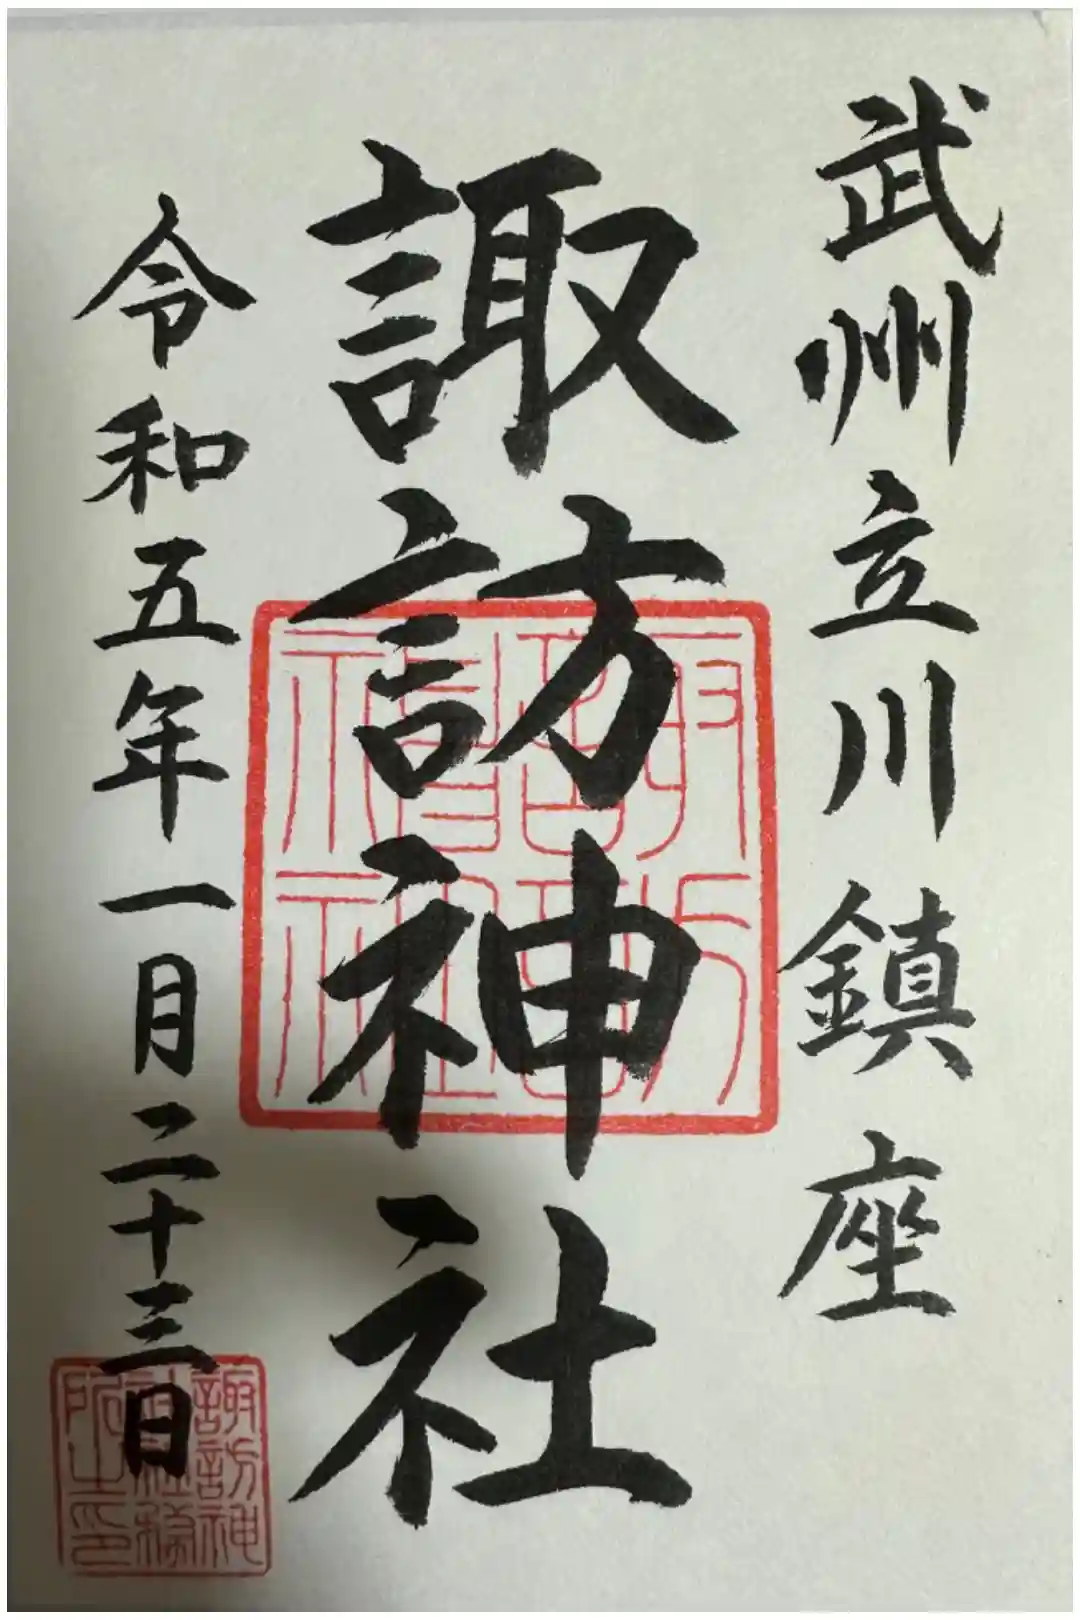 武州立川鎮座
諏訪神社
令和五年一月二十三日
諏訪神
社社務
所之印